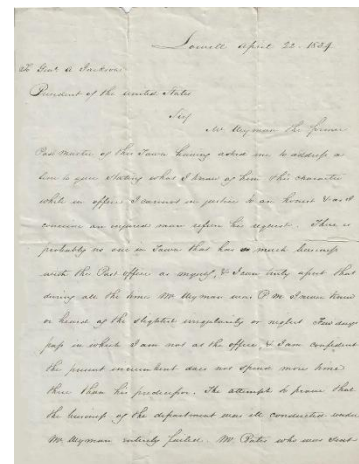 Lowell April 22. 1834
To Genl. A Jackson
President of the United States
Sir
Mr Wyman the former
Post Master of this Town having asked me to address a
line to you stating what I know of him & his character
while in office I cannot in justice to an honest & as I
conceive an injured man refuse his request. There is
probably no one in Town that has so much business
with the Post office as myself, & I can truly assert that
during all the time Mr Wyman was P M I never knew
or heard of the slightest irregularity or neglect Few days
pass in which I am not at the office, & I am confident
the present incumbent does not spend more time
there than his predecessor. The attempt to prove that
the business of the department was ill conducted under
Mr Wyman entirely failed. Mr who was sent